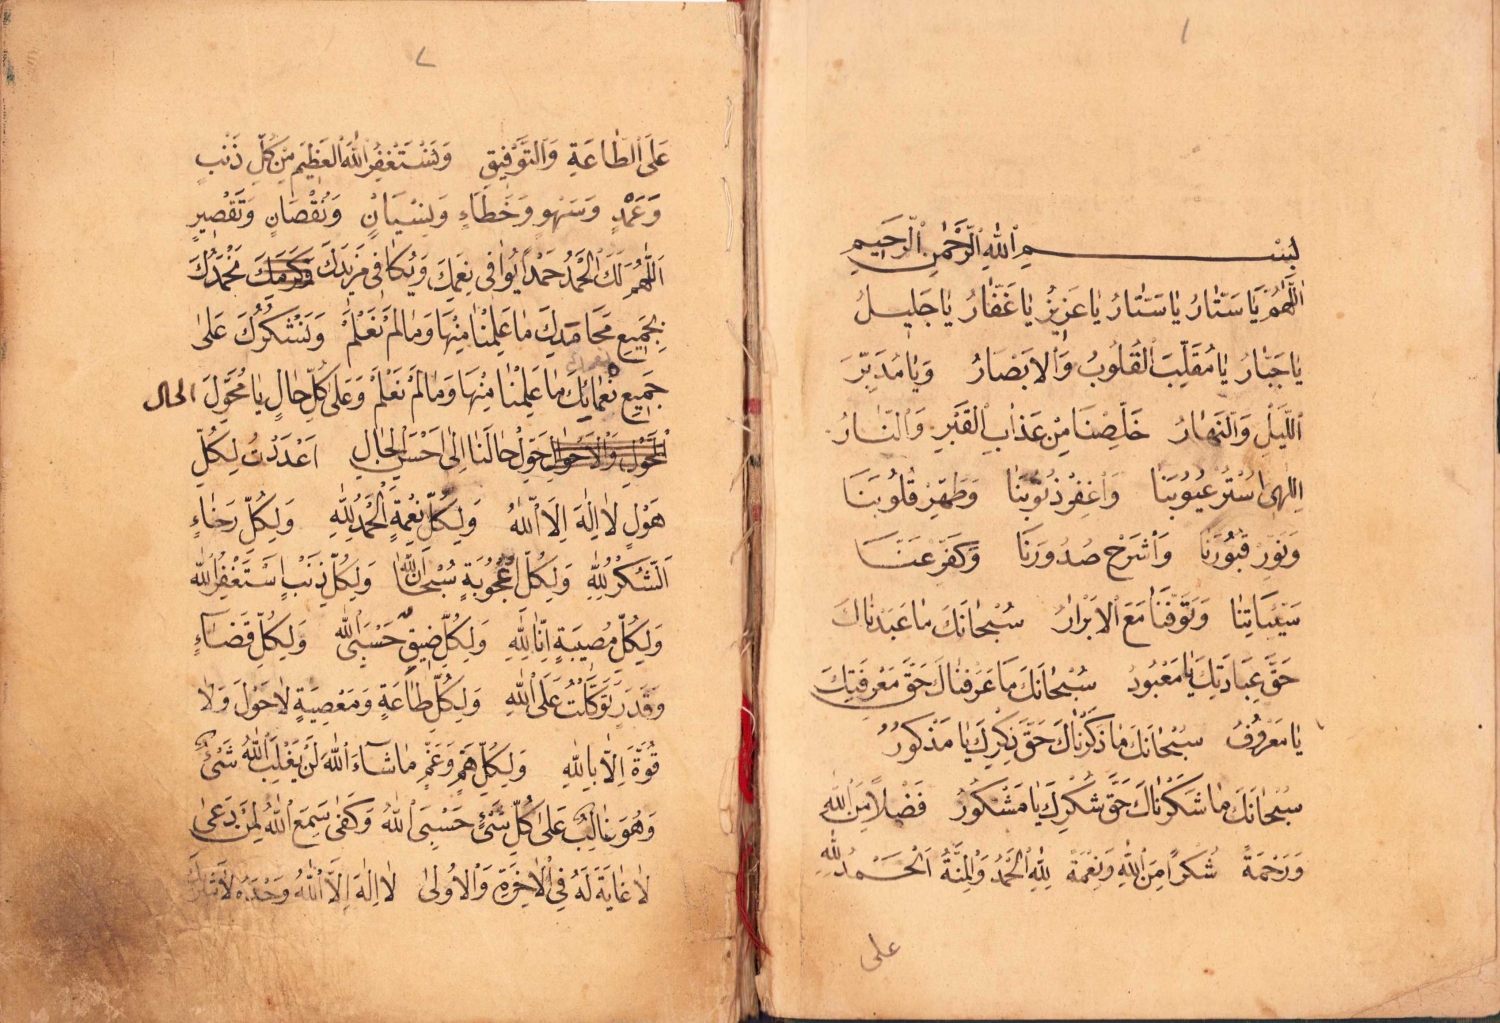 ١
بِسْمِ ٱللّٰهِ ٱلرَّحْمٰنِ ٱلرَّحِيمِ
اَللّٰهُمَّ يَا سَتَّارُ يَا سَتَّارُ يَا عَزِيزُ يَا غَفَّارُ يَا جَلِيلُ
يَا جَبَّارُ يَا مُقَلِّبَ ٱلْقُلُوبُ وَٱلْاَبْصَارُ وَيَا مُدَبِّرَ
ٱللَّيْلِ وَٱلنَّهَارُ خَلِّصْنَا مِنْ عَذَابِ ٱلْقَبْرِ وَٱلنَّارُ
اِلٰهِى اُسْتُرْ عُيُوبَنَا وَاغْفِرْ ذُنُوبَنَا وَطَهِّرْ قُلُوبَنَا
وَنَوِّرْ قُبُورَنَا وَاشْرَحْ صُدُورَنَا وَكَفِّرْ عَنَّا
سَيِّئَاتِنَا وَتَوَفَّنَا مَعَ ٱلْاَبْرَارُ سُبْحَانَكَ مَا عَبَدْنَاكَ
حَقَّ عِبَادَتِكَ يَا مَعْبُودُ سُبْحَانَكَ مَا عَرَفْنَاكَ حَقَّ مَعْرِفَتِكَ
يَا مَعْرُوفُ سُبْحَانَكَ مَا ذَكَرْنَاكَ حَقَّ ذِكْرِكَ يَا مَذْكُورُ
سُبْحَانَكَ مَا شَكَرْنَاكَ حَقَّ شُكْرِكَ يَا مَشْكُورُ فَضْلًا مِنَ ٱللّٰهِ
وَرَحْمَةً شُكْرًا مِنَ ٱللّٰهِ وَنِعْمَةً لِلّٰهِ ٱلْحَمْدُ وَٱلْمِنَّةُ اَلْحَمْدُ لِلّٰهِ
على
٢
عَلَى ٱلطَّاعَةِ وَٱلتَّوْفِيقِ وَنَسْتَغْفِرُ ٱللّٰهَ ٱلْعَظِيمَ مِنْ كُلِّ ذَنْبٍ
وَعَمْدٍ وَسَهْوٍ وَخَطَاءٍ وَنِسْيَانٍ وَنُقْصَانٍ وَتَقْصِيرٍ
اَللّٰهُمَّ لَكَ ٱلْحَمْدُ حَمْدًا يُوَافِى نِعَمِكَ وَيُكَافِى مَزِيدَكَ وَكَرَمِكَ نَحْمَدُكَ
بِجَمِيعِ مَحَامِدِكَ مَا عَلِمْنَا مِنْهَا وَمَا لَمْ نَعْلَمْ وَنَشْكُرُكَ عَلَى
جَمِيعِ نَعْمَائِكَ مَا عَلِمْنَا مِنْهَا وَمَا لَمْ نَعْلَمْ وَعَلَى كُلِّ حَالٍ يَا مُحَوِّلَ الحال
ٱلْحَوْلِ وَٱلْاَحْوَالِ حَوِّلْ حَالَنَا اِلٰى اَحْسَنِ ٱلْحَالِ اَعْدَدْتُ لِكُلِّ
هَوْلٍ لَا اِلٰهَ اِلَّا ٱللّٰهُ وَلِكُلِّ نِعْمَةٍ ٱلْحَمْدُ لِلّٰهِ وَلِكُلِّ رَخَاءٍ
اَلشُّكْرُ لِلّٰهِ وَلِكُلِّ اُعْجُوبَةٍ سُبْحَانَ ٱللّٰهِ وَلِكُلِّ ذَنْبٍ اَسْتَغْفِرُ ٱللّٰهَ
وَلِكُلِّ مُصِيبَةٍ اِنَّا لِلّٰهِ وَلِكُلِّ ضِيقٍ حَسْبِىَ ٱللّٰهُ وَلِكُلِّ قَضَاءٍ
وَقَدَرٍ تَوَكَّلْتُ عَلَى ٱللّٰهِ وَلِكُلِّ طَاعَةٍ وَمَعْصِيَةٍ لَا حَوْلَ وَلَا
قُوَّةَ اِلَّا بِاللّٰهِ وَلِكُلِّ هَمٍّ وَغَمٍّ مَا شَاءَ ٱللّٰهُ لَنْ يَغْلِبَ ٱللّٰهُ شَىْءٌ
وَهُوَ غَالِبٌ عَلَى كُلِّ شَىْءٍ حَسْبِىَ ٱللّٰهُ وَكَفٰى سَمِعَ ٱللّٰهُ لِمَنْ دَعٰى
لَا غَايَةَ لَهُ فِى ٱلْاٰخِرَةِ وَٱلْاُولٰى لَا اِلٰهَ اِلَّا ٱللّٰهُ وَحْدَهُ لَا شَرِيكَ